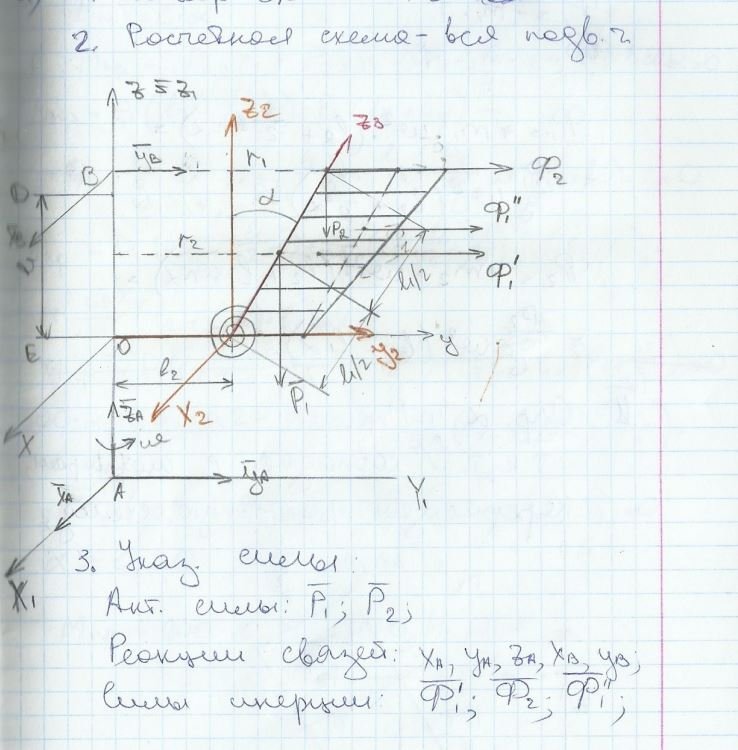 2. Расчетная схема - вся подв. г.
z ≡ z₁
z₂
z₃
B
ȳ_B
r₁
Φ₂
D
α
P₂
Φ₁''
r₂
Φ₁'
l₁/2
E
O
y₂
y
l₂
l₁/2
X
x₂
P̄₁
z̄_A
x̄_A
A
ȳ_A
Y₁
X₁
3. Указ. силы:
Акт. силы: P̄₁; P̄₂;
Реакции связей: x_A, y_A, z_A, x_B, y_B;
Силы инерции: Φ̄₁'; Φ̄₂; Φ̄₁'';